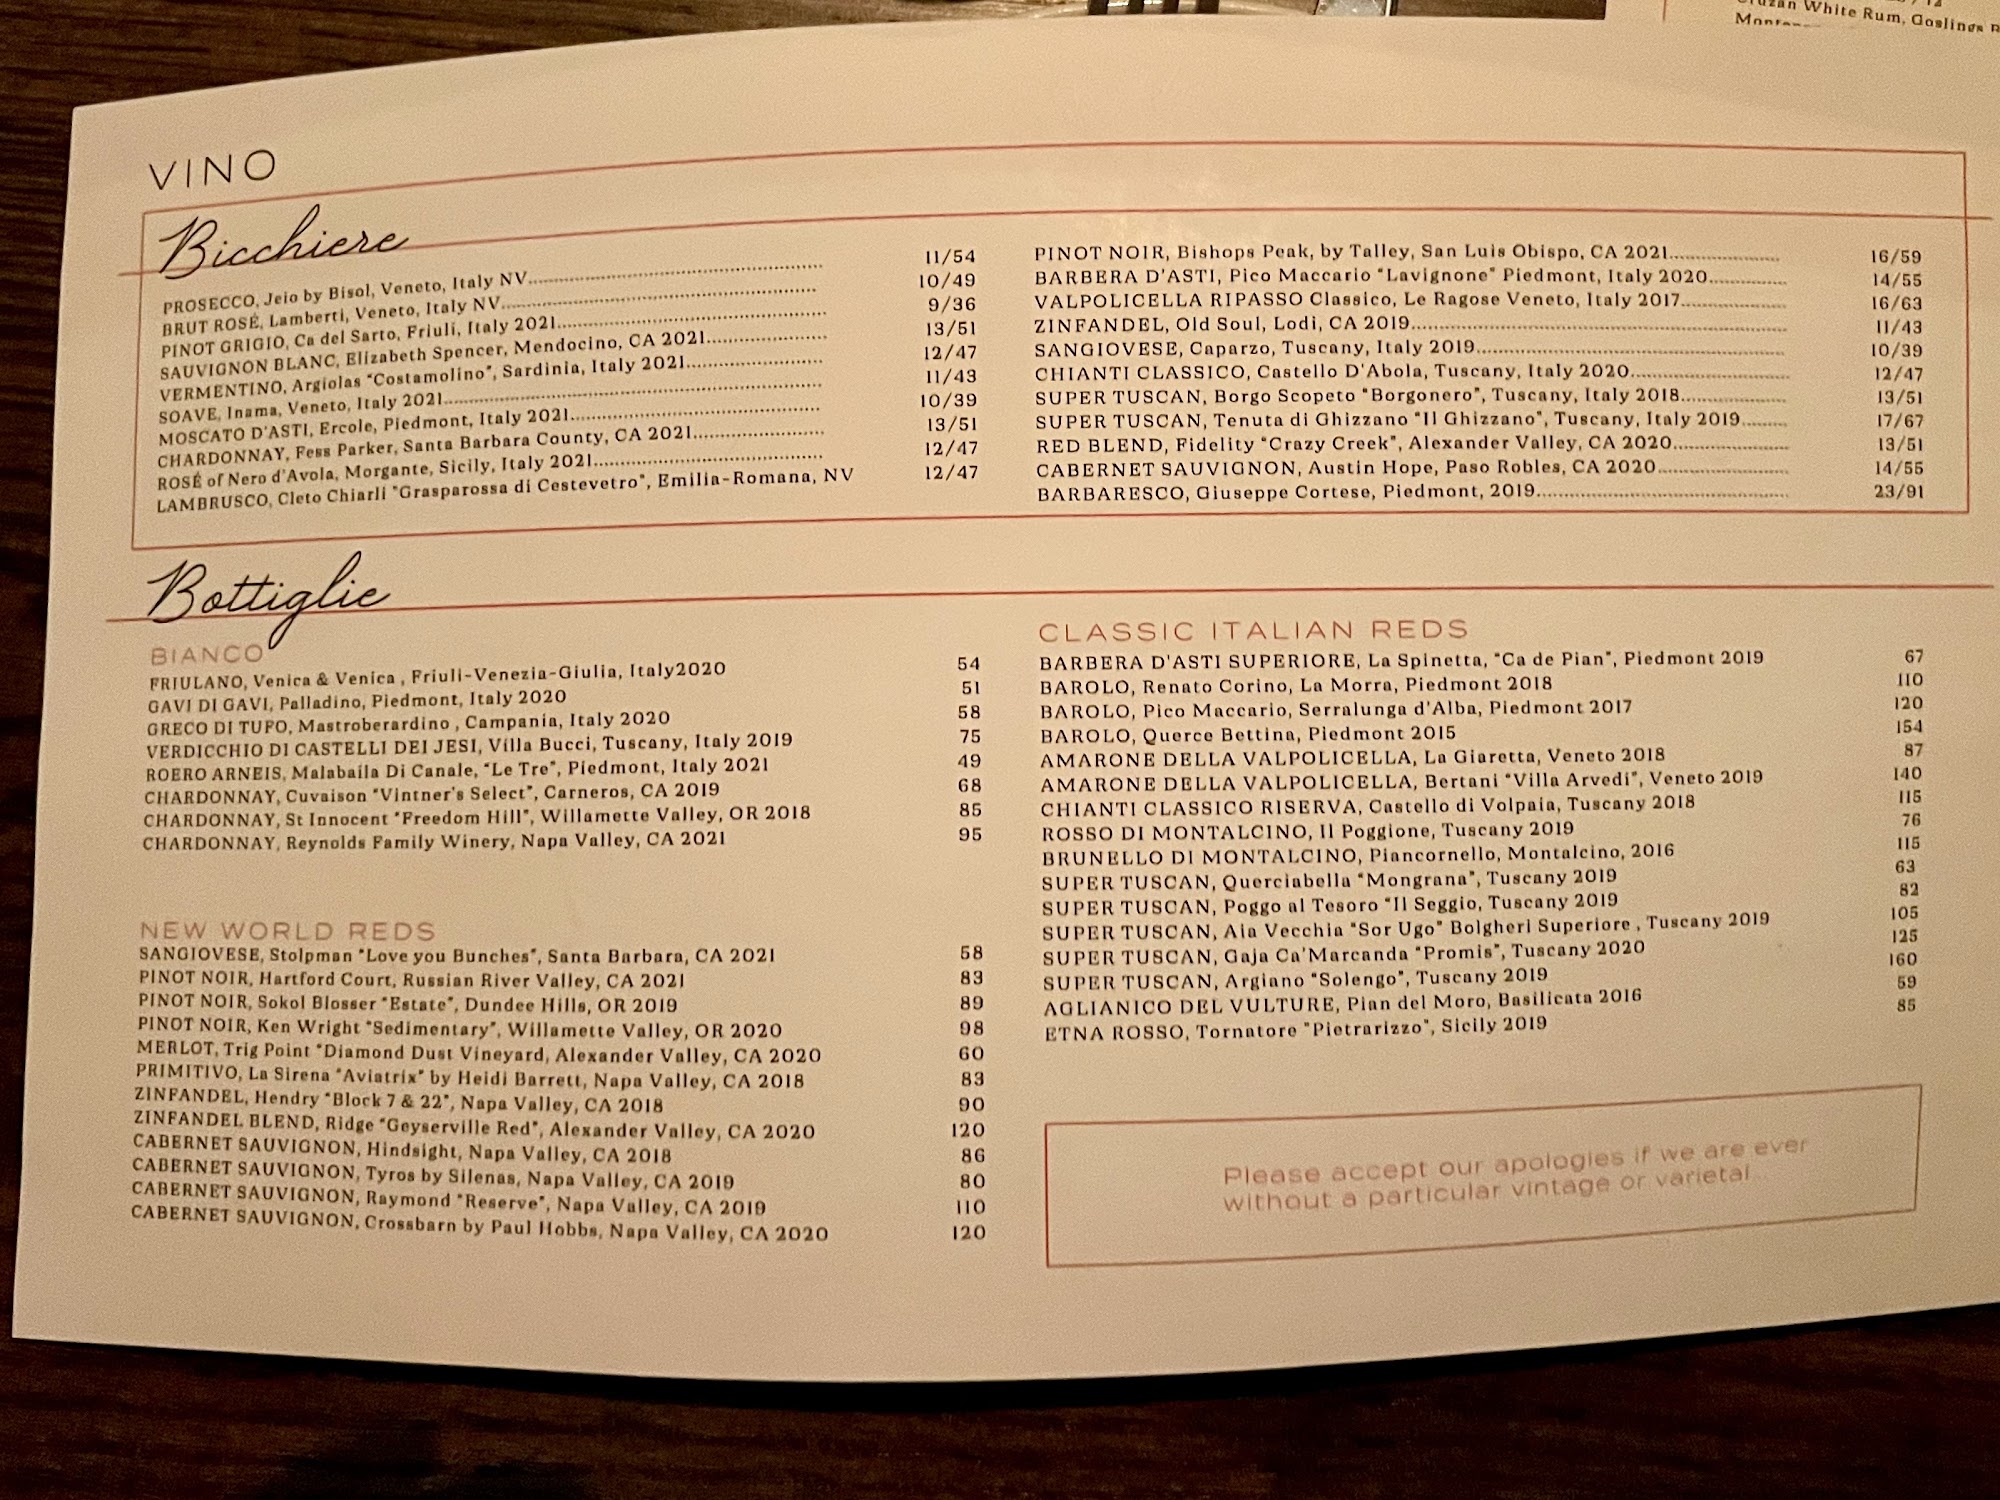 Cruzan White Rum, Goslings
VINO
Bicchiere
PROSECCO, Jeio by Bisol, Veneto, Italy NV 11/54
BRUT ROSÉ, Lamberti, Veneto, Italy NV 10/49
PINOT GRIGIO, Ca del Sarto, Friuli, Italy 2021 9/36
SAUVIGNON BLANC, Elizabeth Spencer, Mendocino, CA 2021 13/51
VERMENTINO, Argiolas "Costamolino", Sardinia, Italy 2021 12/47
SOAVE, Inama, Veneto, Italy 2021 11/43
MOSCATO D'ASTI, Ercole, Piedmont, Italy 2021 10/39
CHARDONNAY, Fess Parker, Santa Barbara County, CA 2021 13/51
ROSÉ of Nero d'Avola, Morgante, Sicily, Italy 2021 12/47
LAMBRUSCO, Cleto Chiarli "Grasparossa di Cestevetro", Emilia-Romana, NV 12/47
PINOT NOIR, Bishops Peak, by Talley, San Luis Obispo, CA 2021 16/59
BARBERA D'ASTI, Pico Maccario "Lavignone" Piedmont, Italy 2020 14/55
VALPOLICELLA RIPASSO Classico, Le Ragose Veneto, Italy 2017 16/63
ZINFANDEL, Old Soul, Lodi, CA 2019 11/43
SANGIOVESE, Caparzo, Tuscany, Italy 2019 10/39
CHIANTI CLASSICO, Castello D'Abola, Tuscany, Italy 2020 12/47
SUPER TUSCAN, Borgo Scopeto "Borgonero", Tuscany, Italy 2018 13/51
SUPER TUSCAN, Tenuta di Ghizzano "Il Ghizzano", Tuscany, Italy 2019 17/67
RED BLEND, Fidelity "Crazy Creek", Alexander Valley, CA 2020 13/51
CABERNET SAUVIGNON, Austin Hope, Paso Robles, CA 2020 14/55
BARBARESCO, Giuseppe Cortese, Piedmont, 2019 23/91
Bottiglie
BIANCO
FRIULANO, Venica & Venica , Friuli-Venezia-Giulia, Italy2020 54
GAVI DI GAVI, Palladino, Piedmont, Italy 2020 51
GRECO DI TUFO, Mastroberardino , Campania, Italy 2020 58
VERDICCHIO DI CASTELLI DEI JESI, Villa Bucci, Tuscany, Italy 2019 75
ROERO ARNEIS, Malabaila Di Canale, "Le Tre", Piedmont, Italy 2021 49
CHARDONNAY, Cuvaison "Vintner's Select", Carneros, CA 2019 68
CHARDONNAY, St Innocent "Freedom Hill", Willamette Valley, OR 2018 85
CHARDONNAY, Reynolds Family Winery, Napa Valley, CA 2021 95
NEW WORLD REDS
SANGIOVESE, Stolpman "Love you Bunches", Santa Barbara, CA 2021 58
PINOT NOIR, Hartford Court, Russian River Valley, CA 2021 83
PINOT NOIR, Sokol Blosser "Estate", Dundee Hills, OR 2019 89
PINOT NOIR, Ken Wright "Sedimentary", Willamette Valley, OR 2020 98
MERLOT, Trig Point "Diamond Dust Vineyard, Alexander Valley, CA 2020 60
PRIMITIVO, La Sirena "Aviatrix" by Heidi Barrett, Napa Valley, CA 2018 83
ZINFANDEL, Hendry "Block 7 & 22", Napa Valley, CA 2018 90
ZINFANDEL BLEND, Ridge "Geyserville Red", Alexander Valley, CA 2020 120
CABERNET SAUVIGNON, Hindsight, Napa Valley, CA 2018 86
CABERNET SAUVIGNON, Tyros by Silenas, Napa Valley, CA 2019 80
CABERNET SAUVIGNON, Raymond "Reserve", Napa Valley, CA 2019 110
CABERNET SAUVIGNON, Crossbarn by Paul Hobbs, Napa Valley, CA 2020 120
CLASSIC ITALIAN REDS
BARBERA D'ASTI SUPERIORE, La Spinetta, "Ca de Pian", Piedmont 2019 67
BAROLO, Renato Corino, La Morra, Piedmont 2018 110
BAROLO, Pico Maccario, Serralunga d'Alba, Piedmont 2017 120
BAROLO, Querce Bettina, Piedmont 2015 154
AMARONE DELLA VALPOLICELLA, La Giaretta, Veneto 2018 87
AMARONE DELLA VALPOLICELLA, Bertani "Villa Arvedi", Veneto 2019 140
CHIANTI CLASSICO RISERVA, Castello di Volpaia, Tuscany 2018 115
ROSSO DI MONTALCINO, Il Poggione, Tuscany 2019 76
BRUNELLO DI MONTALCINO, Piancornello, Montalcino, 2016 115
SUPER TUSCAN, Querciabella "Mongrana", Tuscany 2019 63
SUPER TUSCAN, Poggo al Tesoro "Il Seggio, Tuscany 2019 82
SUPER TUSCAN, Aia Vecchia "Sor Ugo" Bolgheri Superiore , Tuscany 2019 105
SUPER TUSCAN, Gaja Ca'Marcanda "Promis", Tuscany 2020 125
SUPER TUSCAN, Argiano "Solengo", Tuscany 2019 160
AGLIANICO DEL VULTURE, Pian del Moro, Basilicata 2016 59
ETNA ROSSO, Tornatore "Pietrarizzo", Sicily 2019 85
Please accept our apologies if we are ever
without a particular vintage or varietal...